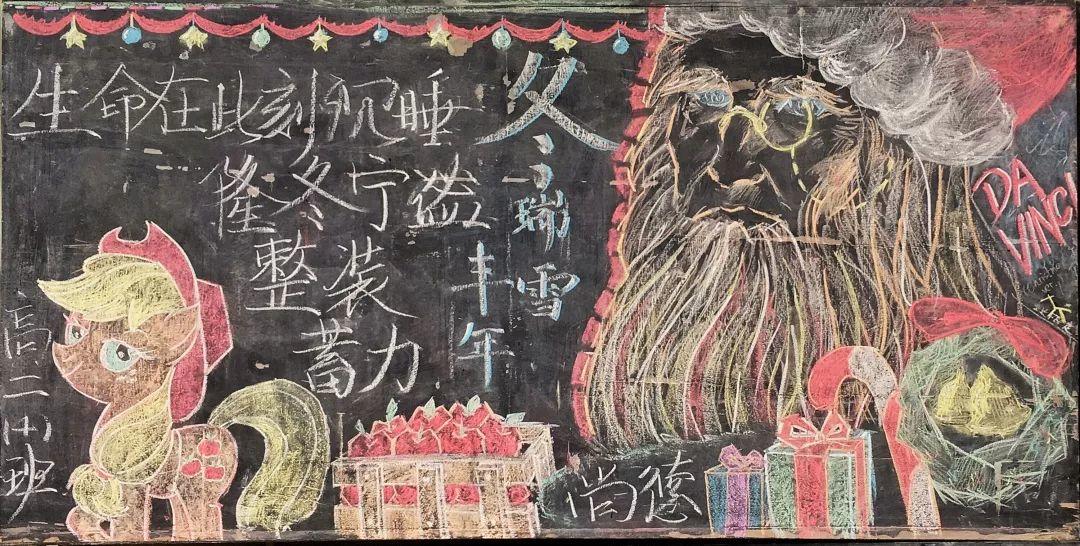 生命在此刻沉睡
隆冬宁谧
整装
蓄力
冬
瑞雪
丰年
高二(十)班
尚德
DA
VINCI